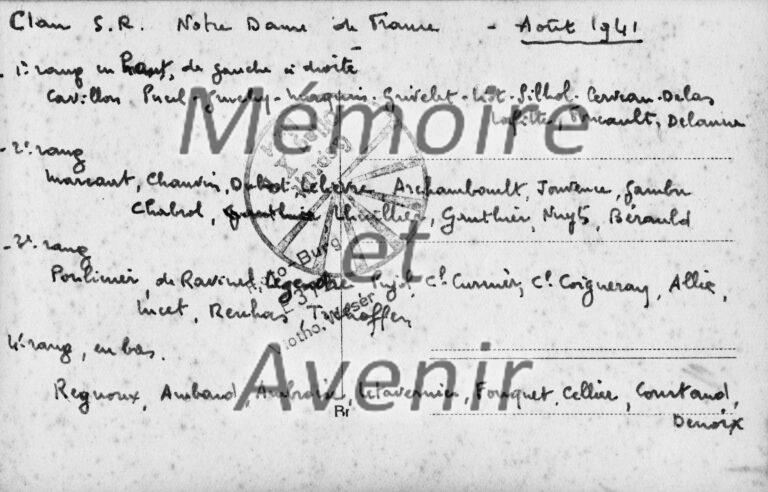 Clan S.R. Notre Dame de France - Août 1941
- 1º rang en haut, de gauche à droite
Cavillon Pucel - - Marquis - Grivelet - - Silhol - Cerveau - Delas
Lafitte, , Delanne
- 2º rang
Marcant, Chauvin, Dubost - Lelièvre Archambault, Jouvence, Gambu
Chabrol, Lhuillier, Gauthier, Nuyts, Bérauld
- 3º rang
Poulimier, de Ravinel, Legendre Pujol, Cl. Curmier, Cl. Coigneray, Allix,
Lucet, Renhas,
4º rang, en bas.
Regnoux, Ambaud, Ambroise, Letavernier, Fouquet, Cellier, Courtaud,
Denoix
Mémoire
et
Avenir
Br